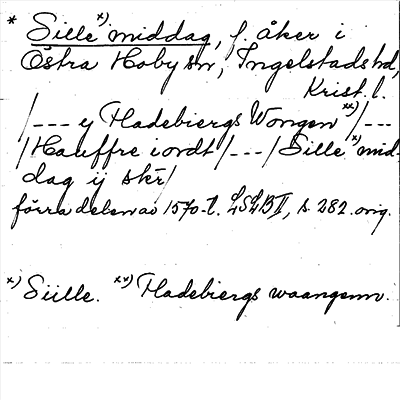 * Sille x) middag, f. åker i
Östra Hoby sn, Ingelstads hd,
Krist. l.
/--- y Fladebiergs Wongen xx) /---
/Hauffre i ordt/---/Sille x) mid-
dag ij skr/
förra delen av 1570-t. LSLB II, s. 282. orig.
x) Siille. xx) Fladebiergs waangenn.